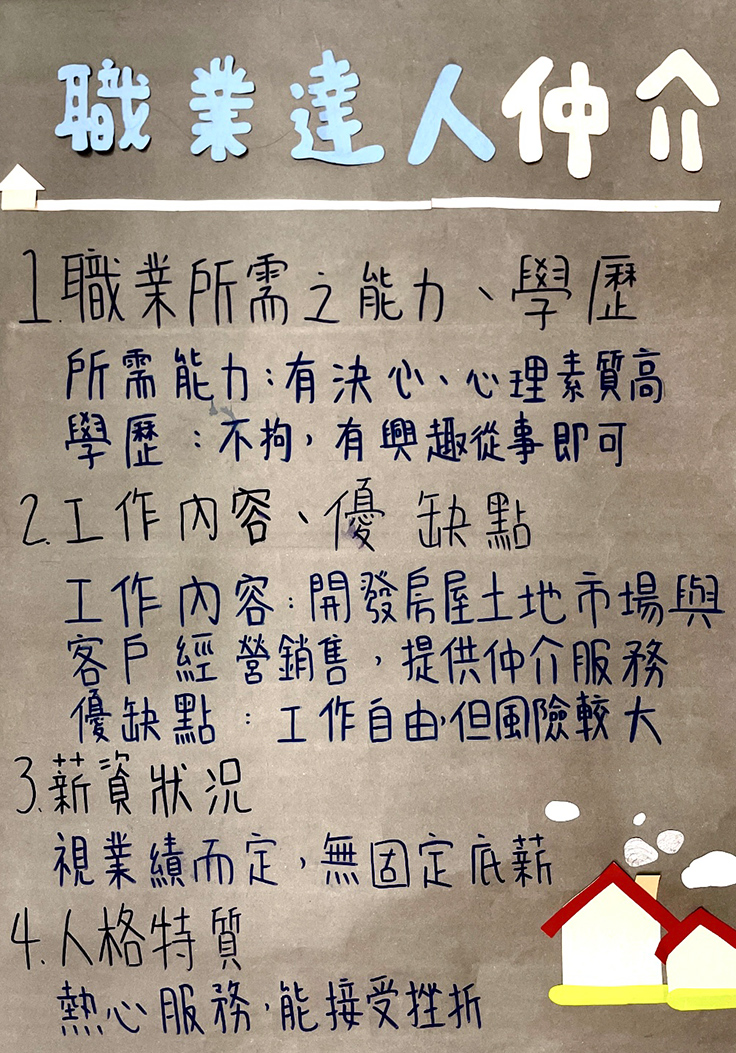 職業達人仲介
1.職業所需之能力、學歷
所需能力:有決心、心理素質高
學歷:不拘,有興趣從事即可
2.工作內容、優缺點
工作內容:開發房屋土地市場與
客戶經營銷售,提供仲介服務
優缺點:工作自由,但風險較大
3.薪資狀況
視業績而定,無固定底薪
4.人格特質
熱心服務,能接受挫折